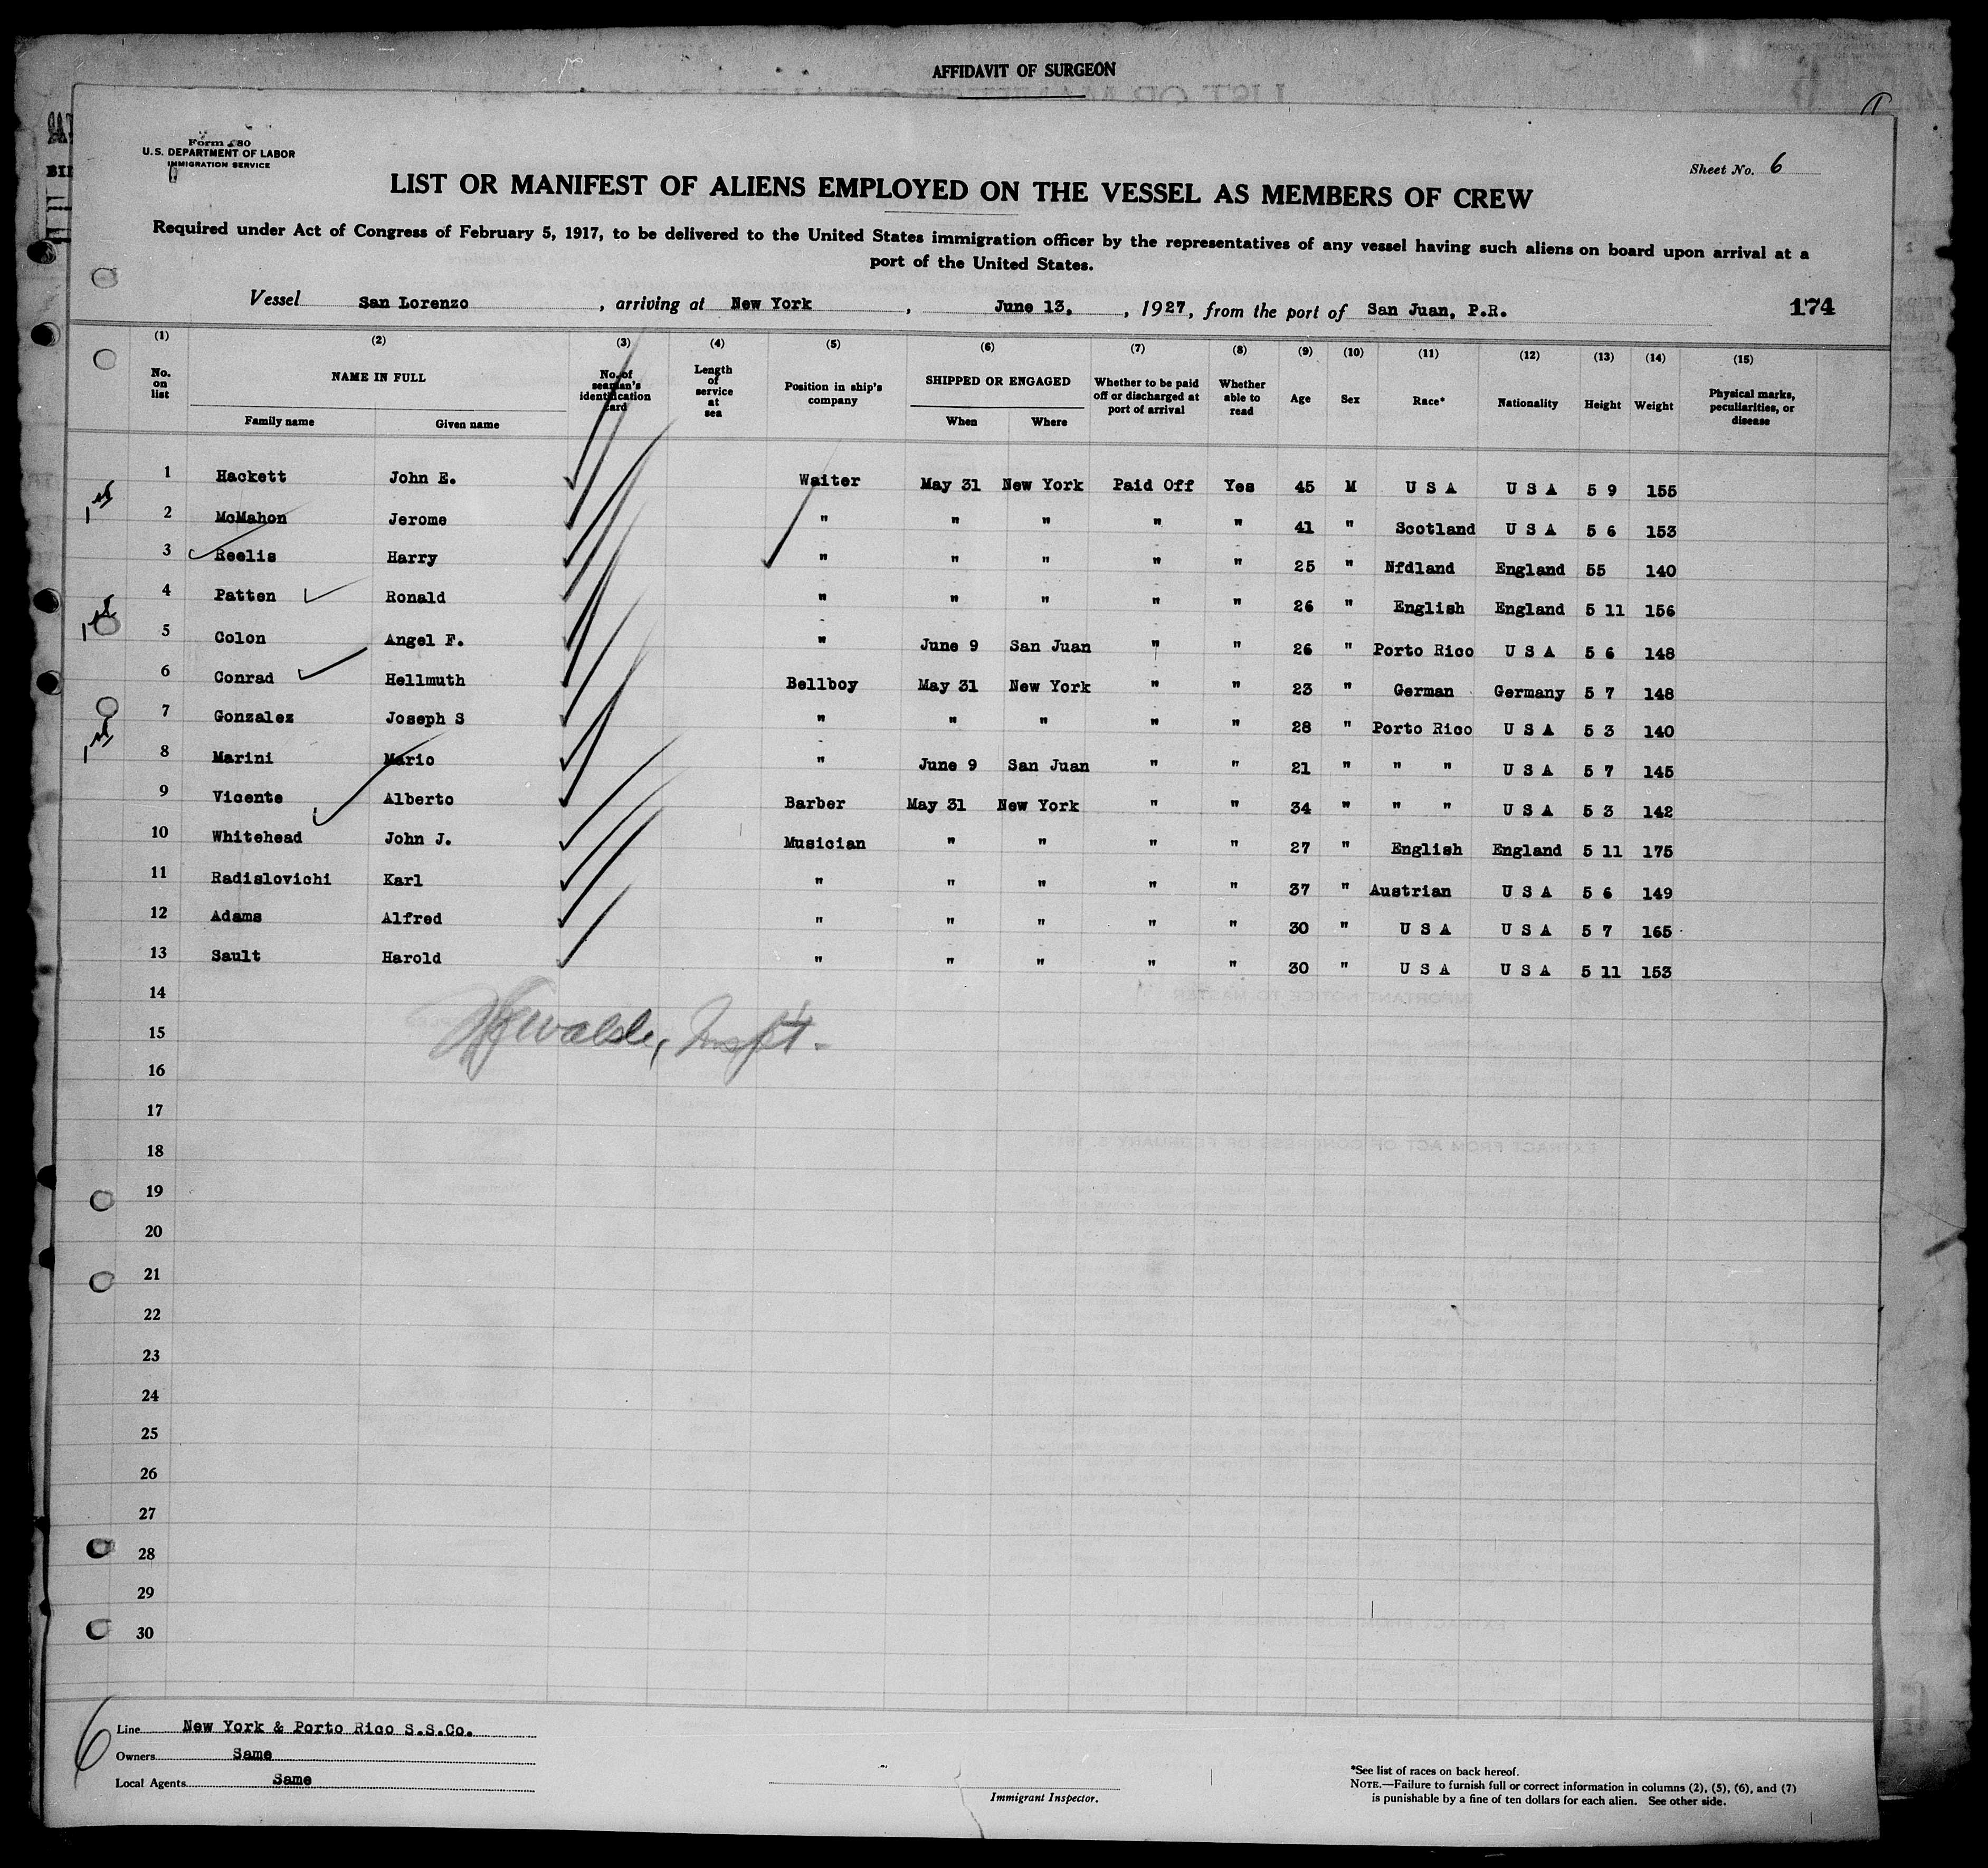 AFFIDAVIT OF SURGEON
U.S. DEPARTMENT OF LABOR
IMMIGRATION SERVICE
Sheet No. 6
LIST OR MANIFEST OF ALIENS EMPLOYED ON THE VESSEL AS MEMBERS OF CREW
Required under Act of Congress of February 5, 1917, to be delivered to the United States immigration officer by the representatives of any vessel having such aliens on board upon arrival at a
port of the United States.
Vessel San Lorenzo, arriving at New York, June 13, , 1927, from the port of San Juan, P.R. 174
(1) (2) (3) (4) (5) (6) (7) (8) (9) (10) (11) (12) (13) (14) (15)
No. on list NAME IN FULL No. of seaman's identification card Length of service at sea Position in ship's company SHIPPED OR ENGAGED Whether to be paid off or discharged at port of arrival Whether able to read Age Sex Race* Nationality Height Weight Physical marks, peculiarities, or disease
Family name Given name When Where
1 Hackett John E. Waiter May 31 New York Paid Off Yes 45 M U S A U S A 5 9 155
1st
2 McMahon Jerome " " " " " 41 " Scotland U S A 5 6 153
3 Reelis Harry " " " " " 25 " Nfdland England 55 140
4 Patten Ronald " " " " " 26 " English England 5 11 156
1st
5 Colon Angel F. " June 9 San Juan " " 26 " Porto Rico U S A 5 6 148
6 Conrad Hellmuth Bellboy May 31 New York " " 23 " German Germany 5 7 148
7 Gonzalez Joseph S " " " " " 28 " Porto Rico U S A 5 3 140
1st
8 Marini Mario " June 9 San Juan " " 21 " " " U S A 5 7 145
9 Vicente Alberto Barber May 31 New York " " 34 " " " U S A 5 3 142
10 Whitehead John J. Musician " " " " 27 " English England 5 11 175
11 Radislovichi Karl " " " " " 37 " Austrian U S A 5 6 149
12 Adams Alfred " " " " " 30 " U S A U S A 5 7 165
13 Sault Harold " " " " " 30 " U S A U S A 5 11 153
14
15
16
17
18
19
20
21
22
23
24
25
26
27
28
29
30
6
Line New York & Porto Rico S.S.Co.
Owners Same
Local Agents Same
Immigrant Inspector.
*See list of races on back hereof.
NOTE.—Failure to furnish full or correct information in columns (2), (5), (6), and (7)
is punishable by a fine of ten dollars for each alien. See other side.